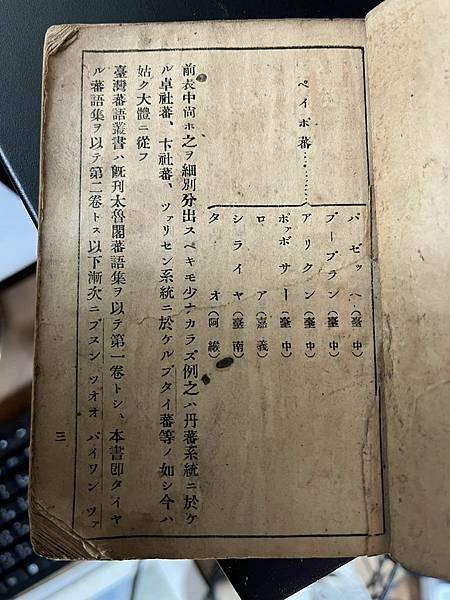 ペイポ蕃………
パゼッヘ(臺中)
プープラン(臺中)
アリクン(臺中)
ポァボサー(臺中)
ロア(嘉義)
シライヤ(臺南)
タオ(阿緱)
前表中尚ホ之ヲ細別分出スベキモ少ナカラズ例之ハ丹蕃系統ニ於ケ
ル卓社蕃、卡社蕃、ツァリセン系統ニ於ケルブタイ蕃等ノ如シ今ハ
姑ク大體ニ從フ
臺灣蕃語叢書ハ旣刊太魯閣蕃語集ヲ以テ第一卷トシ、本書卽タイヤ
ル蕃語集ヲ以テ第二卷トス以下漸次ニブスン ツオオ パイワン ツァ
三